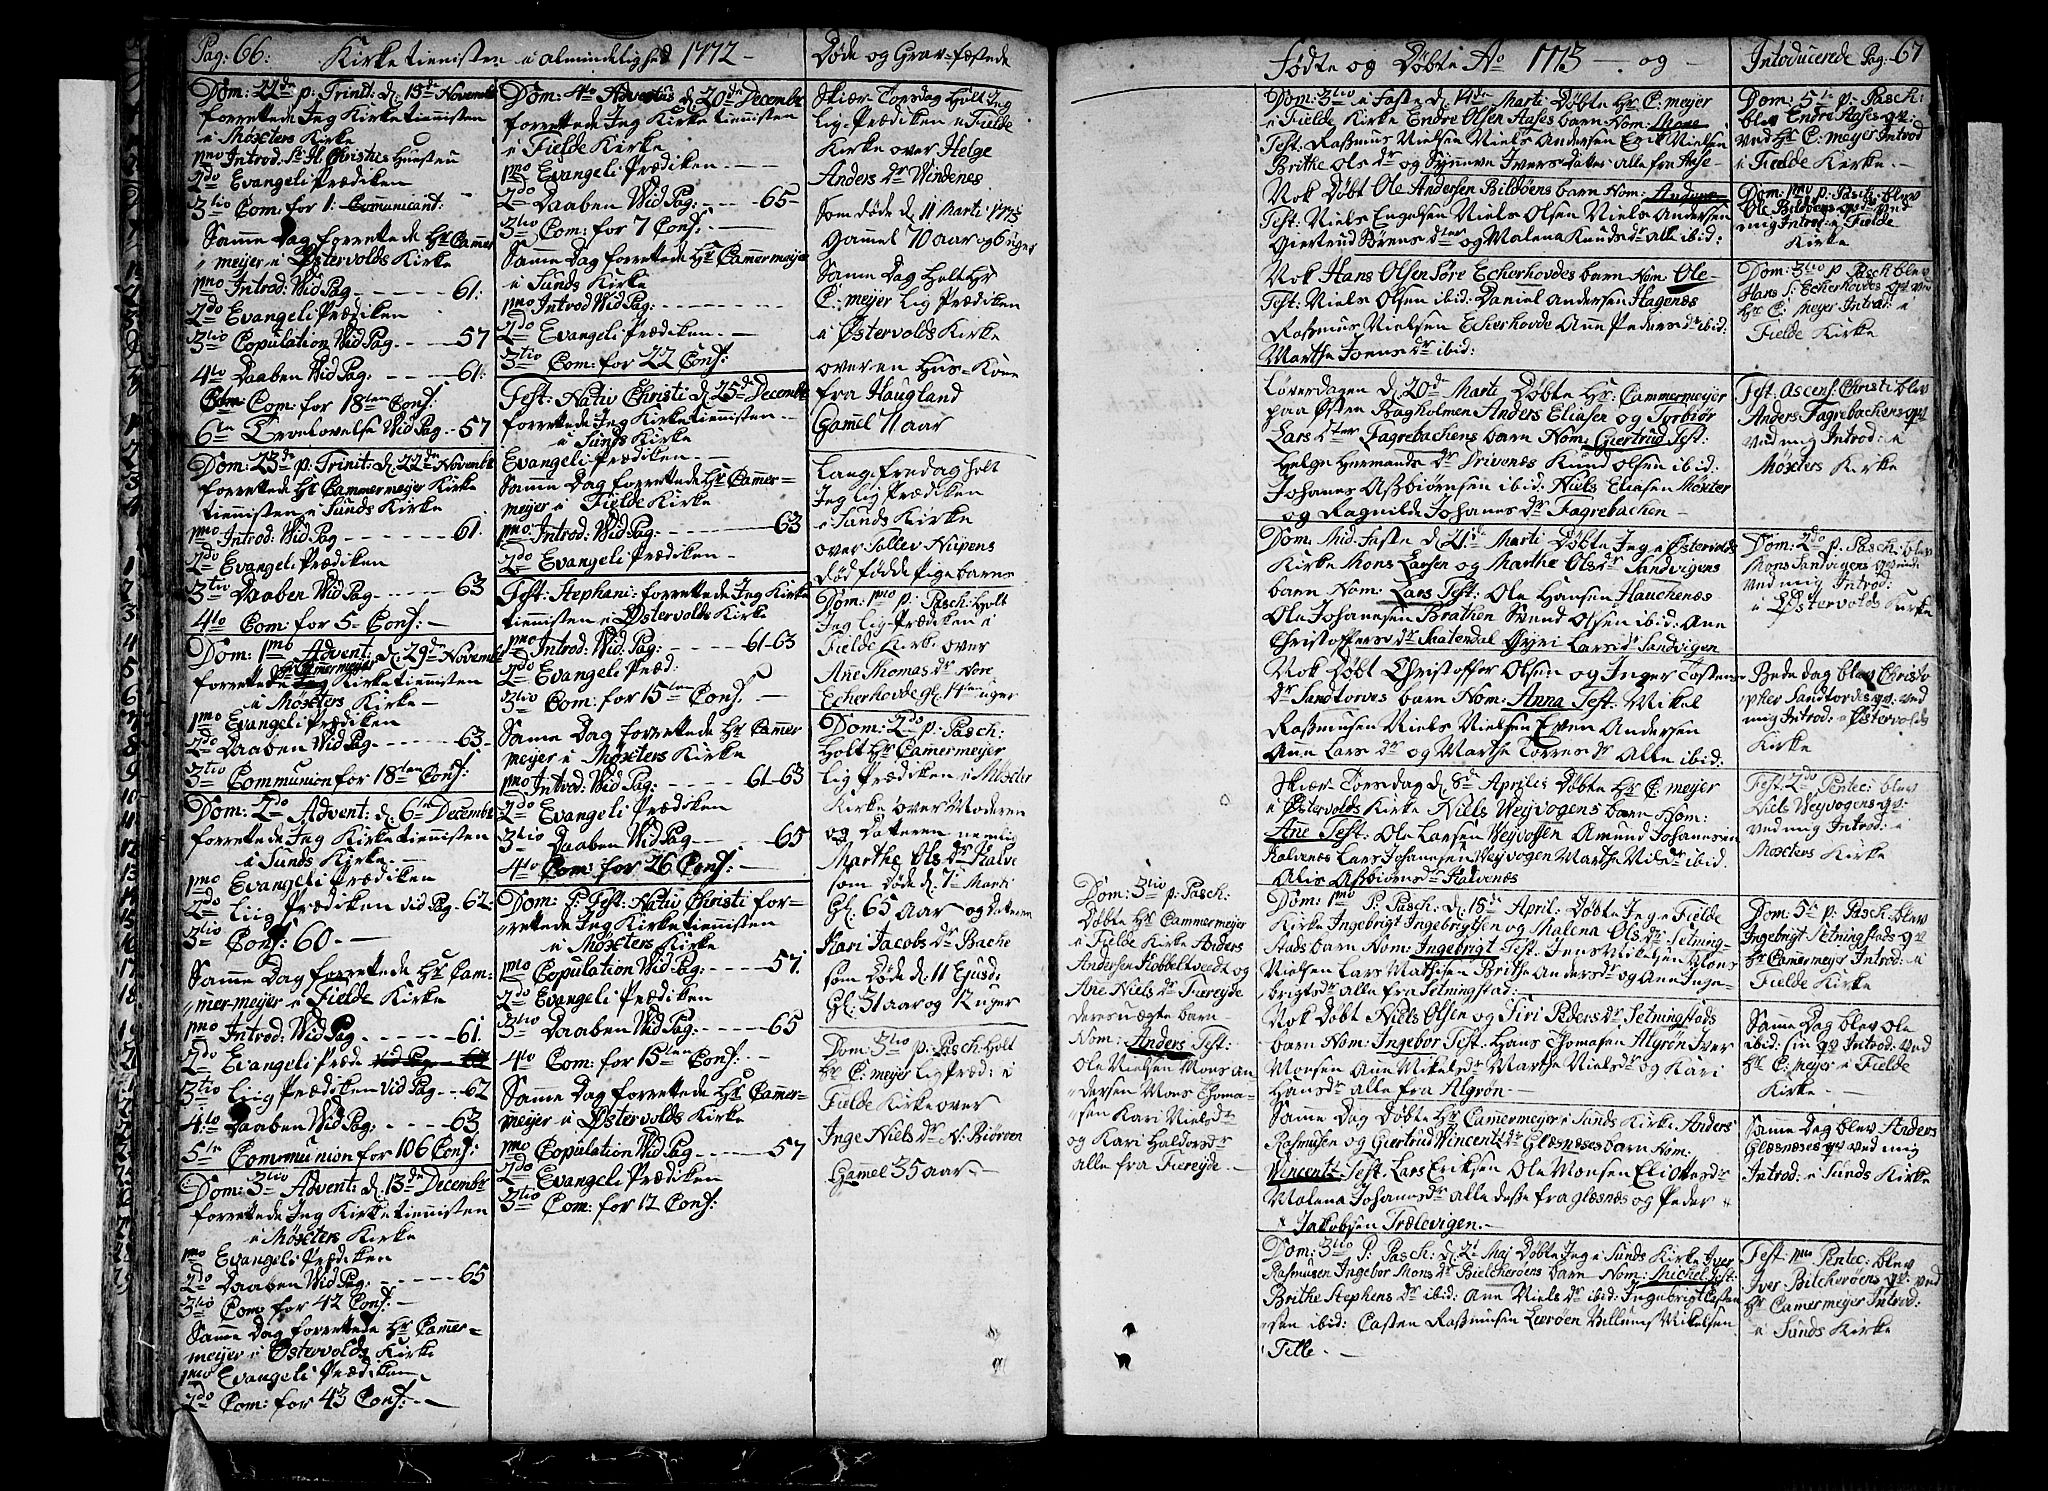 Pag: 66: Kirketienisten i almindelighed 1772 -
Dom: 22de p: Trinit: d. 15de Novembr
forrettede Jeg Kirketiennisten
i Møxters Kirke
1mo Introd:
2do Evangeli Prædiken
3tio Com: for 1: Communicant:
Samme Dag forrettede Hr Cammer
meijer i Østervolds Kirke
1mo Introd: Wid Pag - - - - - 61:
2do Evangeli Prædiken
3tio Copulation Wid Pag - - - - 57
4to Daaben Wid Pag: - - - - 61:
Com: for 18ten Cons:
6te Trolovelse Wid Pag - 57
Dom: 23de p: Trinit: d. 22de Novembr
forrettede Hr Cammermeijer Kirke
tiennisten i Sunds Kirke
1mo Introd: Wid Pag - - - - - 61:
2do Evangeli Prædiken
3tio Daaben Wid Pag - - - - 63
4to Com: for 5 Cons: -
Dom: 1mo Advent: d. 29de Novembr
Hr Cammermeijer
forrettede Jeg Kirketiennisten
i Møxters Kirke -
1mo Evangeli Prædiken
2do Daaben Wid Pag - - - - - 63
3tio Communion for 18ten Cons:
Dom: 2do Advent: d. 6te Decembr
forrettede Jeg Kirketiennisten
i Sunds Kirke -
1mo Evangeli Prædiken
2do Liig Prædiken vid Pag - 62
3tio Cons: 60 -
Samme Dag forrettede Hr Cam:
mer-meijer i Fielde Kirke
1mo Introd: Wid Pag - - - - - 61:
2do Evangeli Præde
3tio Liig Prædiken vid Pag - - 62
4to Daaben Wid Pag: - - - - 63
5te Communion for 106 Cons:
Dom: 3tio Advent: d. 13de Decembr
forrettede Jeg Kirketiennisten
i Møxters Kirke
1mo Evangeli Prædiken
2do Daaben Wid Pag: - - - - 65
3tio Com: for 42 Cons: -
Samme Dag forrettede Hr Camer-
meijer i Østervolds Kirke
1mo Evangeli Prædiken
2do Com: for 43 Cons: - -
Dom: 4to Adventus d. 20de Decembr
forrettede Jeg Kirke tiennisten
i Fielde Kirke
1mo Evangeli Prædiken. -
2do Daaben Wid Pag: - - - - 65 -
3tio Com: for 7 Cons: -
Samme Dag forrettede Hr Camermeijer
i Sunds Kirke
1mo Introd Wid Pag: - - - -
2do Evangeli Prædiken. -
3tio Com: for 22 Cons:
Fest: Nativ Christi d. 25de Decembr
forrettede Jeg Kirketiennisten -
i Sunds Kirke
Evangeli Prædiken. -
Samme Dag forrettede Hr Camer-
meijer i Fielde Kirke
1mo Introd: Wid Pag: - - - - - 63
2do Evangeli Prædiken -
Fest: Stephani: forrettede Jeg Kirke
tiennisten i Østervolds Kirke
1mo Introd: Wid Pag: - - - - 61-63
2do Evangeli Præd:
3tio Com: for 15ten Cons: -
Samme Dag forrettede Hr Cammer
meijer i Møxters Kirke
1mo Introd: Wid Pag: - - - - 61-63
2do Evangeli Prædiken
3tio Daaben Wid Pag - - - - 65
4to Com: for 26 Cons: -
Dom: P: Fest: Nativ Christi for-
rettede Jeg Kirketiennisten
i Møxters Kirke
1mo Copulation Wid Pag: - - - - 57:
2do Evangeli Prædiken
3tio Daaben Wid Pag: - - - - 65
4to Com: for 15ten Cons: -
Samme Dag forrettede Hr Cammer-
meijer i Østervolds Kirke
1mo Copulation Wid Pag - - - - 57
2do Evangeli Prædiken
3tio Com: for 12 Cons:
Døde og Grav-fæstede
Skiær-Torsdag Holt Jeg
Lig-Prædiken i Fielde
Kirke over Helge
Anders dr Windenes
Som døde d. 11 Marti 1773
Gammel 70 aar og 6 uger
Samme Dag Holt Hr
C: meijer Lig Prædiken
i Østervolds Kirke
over en Hus-Kone
fra Haugland
Gamel 71 aar
Lang-fredag holt
Jeg Lig Prædiken
i Sunds Kirke
over Sollev Nipens
død fødde Pigebarn
Dom: 1mo p: Pasch: Holt
Jeg Lig-Prædiken i
Fielde Kirke over
Ane Thomas dr Nore
Echerhovde gl: 14ten uger
Dom: 2do p: Pasch:
Holt Hr Camermeijer
Lig Prædiken i Møxter
Kirke over Moderen
og Datteren nemlig
Marthe Ols dr Kalve
som Døde d. 7de Marti
Gl: 65 Aar og Datteren
Kari Jacobs dr Bache
som Døde d. 11 Ejusd:
Gl: 31 aar og 12 uger
Dom: 3tio p: Pasch: Holt
Hr C: meijer Lig Præd: i
Fielde Kirke over
Inge Niels dr N: Biöröen
Gammel 35 aar -
Dom: 3tio p: Pasch:
Døbte Hr Cammermeijer
i Fielde Kirke Anders
Andersen Kobbeltvedt og
Ane Niels dr Tiereyde
deres uægte barn
Nom: Anders Test:
Ole Nielsen Mons An
dersen Mons Thoma-
sen Kari Niels dr
og Kari Haldors dr
alle fra Tiereyde. -
Fødte og Døbte Ao 1773 - og -
Dom: 3tio i Faste d. 14de Marti Døbte Hr C: meijer
i Fielde Kirke Endre Olsen Hases barn Nom:
Test: Rasmus Nielsen Niels Andersen Erik Nielsen
Brithe Ols dr og Synneve Ivers datter alle fra Hase -
Nok Døbt Ole Andersen Bildøens barn Nom:
Test: Niels Engelsen Niels Olsen Niels Andersen
Giertrud Børens dter og Malena Knuds dr alle ibid:
Nok Hans Olsen Søre Echerhovdes barn Nom: Ole -
Test: Niels Olsen ibid: Daniel Andersen Hagenæs
Rasmus Nielsen Echerhovde Ane Peders dr ibid:
Marthe Joens dr ibid:
Løverdagen d. 20de Marti Døbte Hr: Cammermeijer
paa Østen Bagholmen Anders Eliasen og Torbiør
Lars dter Fagrebachens barn Nom: Giertrud Test:
Helge Hermands dr Drivenæs Knud Olsen ibid:
Johanes Asbiørnsen ibid: Niels Eliasen Møxter
og Ragnilde Johanes dr Fagrebachen -
Dom: Mid-Faste d. 21de Marti Døbte Jeg i Østervolds
Kirke Mons Larsen og Marthe Ols dr Sandvigens
barn Nom: Lars Test: Ole Hansen Hauchenæs
Ole Johanesen Brathen Svend Olsen ibid: Ane
Christoffers dr Saatendal Gyri Lars dr Sandvigen
Nok Døbt Christoffer Olsen og Inger Tostens
dr Sandtorves barn Nom: Anna Test: Mikel
Rasmusen Niels Nielsen Even Andersen
Ane Lars dr og Marthe Torres dr Alle ibid:
Skiær-Torsdag d. 8de Aprilis Døbte Hr C: meijer
i Østervolds Kirke Niels Weyvogens barn Nom:
Ane Test: Ole Larsen Weyvogen Amund Johanesen
Kalvenes Lars Johanesen Weyvogen Marthe Niels dr ibid:
Alis Asbiørns dr Kalvenæs
Dom: 1mo P: Pasch: d. 18de April: Døbte Jeg i Fielde
Kirke Ingebrigt Ingebrigtsen og Malena Ols dr Setning-
Stads barn Nom: Ingebrigt Test: Jens Nielsen Mons
Nielsen Lars Mathisen Brithe Anders dr og Ane Inge-
brigts dr alle fra Setningstad:
Nok Døbt Niels Olsen og Siri Peders dr Setningstads
barn Nom: Ingebor Test: Hans Thomasen Algrøn Iver
Monsen Ane Mikels dr Marthe Niels dr og Kari
Hans dr alle fra Algrøn -
Samme Dag Døbte Hr Camermeijer i Sunds Kirke Anders
Rasmusen og Giertrud Vincents dr Glæsnæses barn Nom:
Vincent: Test: Lars Eriksen Ole Monsen Eli Olles dr
Malena Johanes dr alle desse fra glæsnæs og Peder
Jakobsen Trælevigen. -
Dom: 3tio P: Pasch: d. 2de Maj Døbte Jeg i Sunds Kirke Iver
Rasmusen Ingebor Mons dr Bielcherøens barn Nom: Michel Test:
Brithe Stephens dr ibid: Ane Niels dr ibid: Ingebrigt Casten
sen ibid: Casten Rasmusen Lerøen Villums Mikelsen
Telle -
Introducerede Pag: 67
Dom: 5te p: Pasch:
blev Endre Hases qv:
ved Hr C: meijer Introd
i Fielde Kirke. -
Dom: 1mo p: Pasch: blev
Ole Bildøens qv: ved
mig Introd: i Fielde
Kirke
Dom: 3tio p: Pasch blev
Hans S: Echerhovdes qv: ved
Hr C: Meijer Introd: i
Fielde Kirke
Fest: Ascens: Christi blev
Anders Fagrebachens qv:
ved mig Introd: i
Møxters Kirke
Dom: 2do p: Pasch: blev
Mons Sandvigens qvinde
ved mig Introd:
i Østervolds Kirke
Bededag blev Christo
pher Sandtordes qv: ved
mig Introd: i Østervolds
Kirke
Fest: 2do Pentec: blev
Niels Weyvogens qv:
ved mig Introd: i
Møxters Kirke
Dom: 5te p: Pasch: blev
Ingebrigt Setningstads qv
Hr Camermeijr Introd: i
Fielde Kirke
Samme Dag blev Ole
ibid: sin qv Introd: ved
Hr C: meijr i Fielde
Kirke -
Samme Dag blev Anders
Glæsnæses qv ved mig
Introd: i Sunds Kirke
Fest: 1mo Pentec: blev
Iver Bilcherøens qv: ved
Hr Camermeijer Introd:
i Sunds Kirke